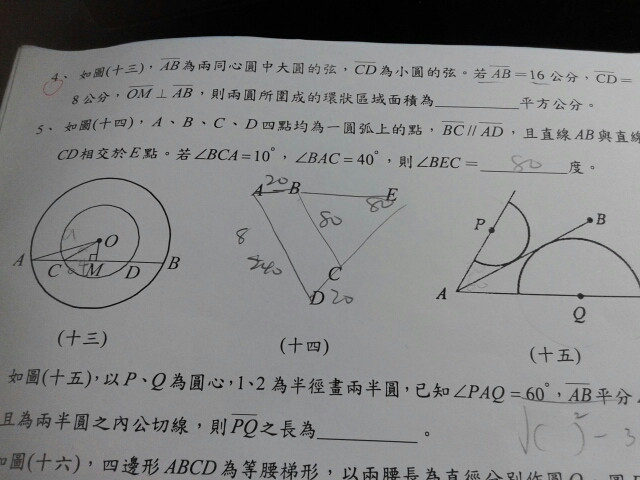 4、如圖(十三)，AB為兩同心圓中大圓的弦，CD為小圓的弦。若AB＝16公分，CD＝
8公分，OM⊥AB，則兩圓所圍成的環狀區域面積為________平方公分。
5、如圖(十四)，A、B、C、D四點均為一圓弧上的點，BC//AD，且直線AB與直線
CD相交於E點。若∠BCA＝10°，∠BAC＝40°，則∠BEC＝ 80 度。
A C M D B O
(十三)
A 20 B 80 E
80
8
240
C
D 20
(十四)
P B
A Q
(十五)
如圖(十五)，以P、Q為圓心，1、2為半徑畫兩半圓，已知∠PAQ＝60°，AB平分
且為兩半圓之內公切線，則PQ之長為________。
√( )²－3
如圖(十六)，四邊形ABCD為等腰梯形，以兩腰長為直徑分別作圓O、圓